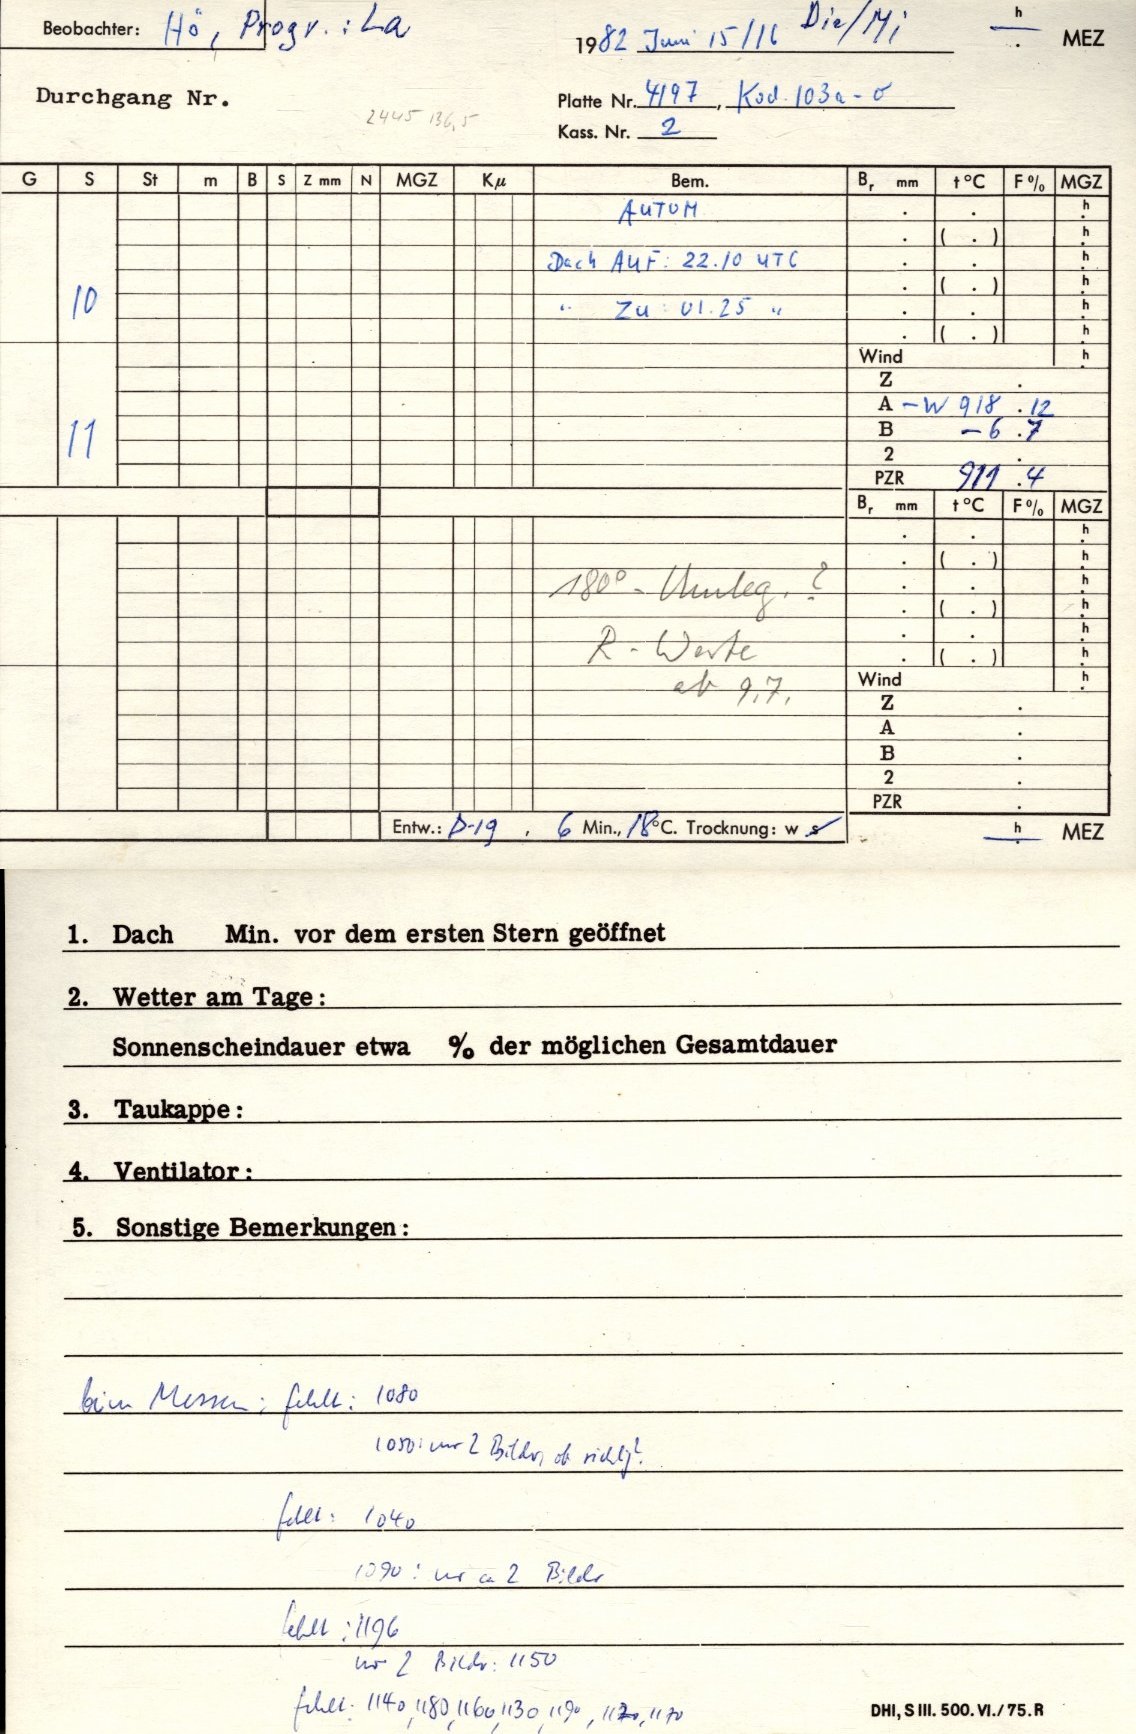 Beobachter: Hö, Progr.: La
1982 Juni 15/16 Die/Mi h . MEZ
Durchgang Nr.
2445 136,5
Platte Nr. 4197, Kod. 103a-O
Kass. Nr. 2
G S St m B S Z mm N MGZ Kμ Bem. Br mm t°C F% MGZ
AUTOM . . h
. ( . ) h
Dach AUF: 22.10 UTC . . h
10 . ( . ) h
" Zu: 01.25 " . . h
. ( . ) h
Wind h
Z .
A -W 918 .12
11 B -6 .7
2 .
PZR 911 .4
Br mm t°C F% MGZ
. . h
. ( . ) h
180°-Umleg.? . . h
. ( . ) h
R-Werte . . h
. ( . ) h
ab 9.7. Wind h
Z .
A .
B .
2 .
PZR .
Entw.: D-19, 6 Min., 18°C. Trocknung: w s h . MEZ
1. Dach Min. vor dem ersten Stern geöffnet
2. Wetter am Tage:
Sonnenscheindauer etwa % der möglichen Gesamtdauer
3. Taukappe:
4. Ventilator:
5. Sonstige Bemerkungen:
beim Messen: fehlt: 1080
1050: nur 2 Bilder, ob richtig?
fehlt: 1040
1090: nur ca 2 Bilder
fehlt: 1196
nur 2 Bilder: 1150
fehlt: 1140, 1180, 1160, 1130, 1190, 1170
DHI, S III. 500. VI./75. R